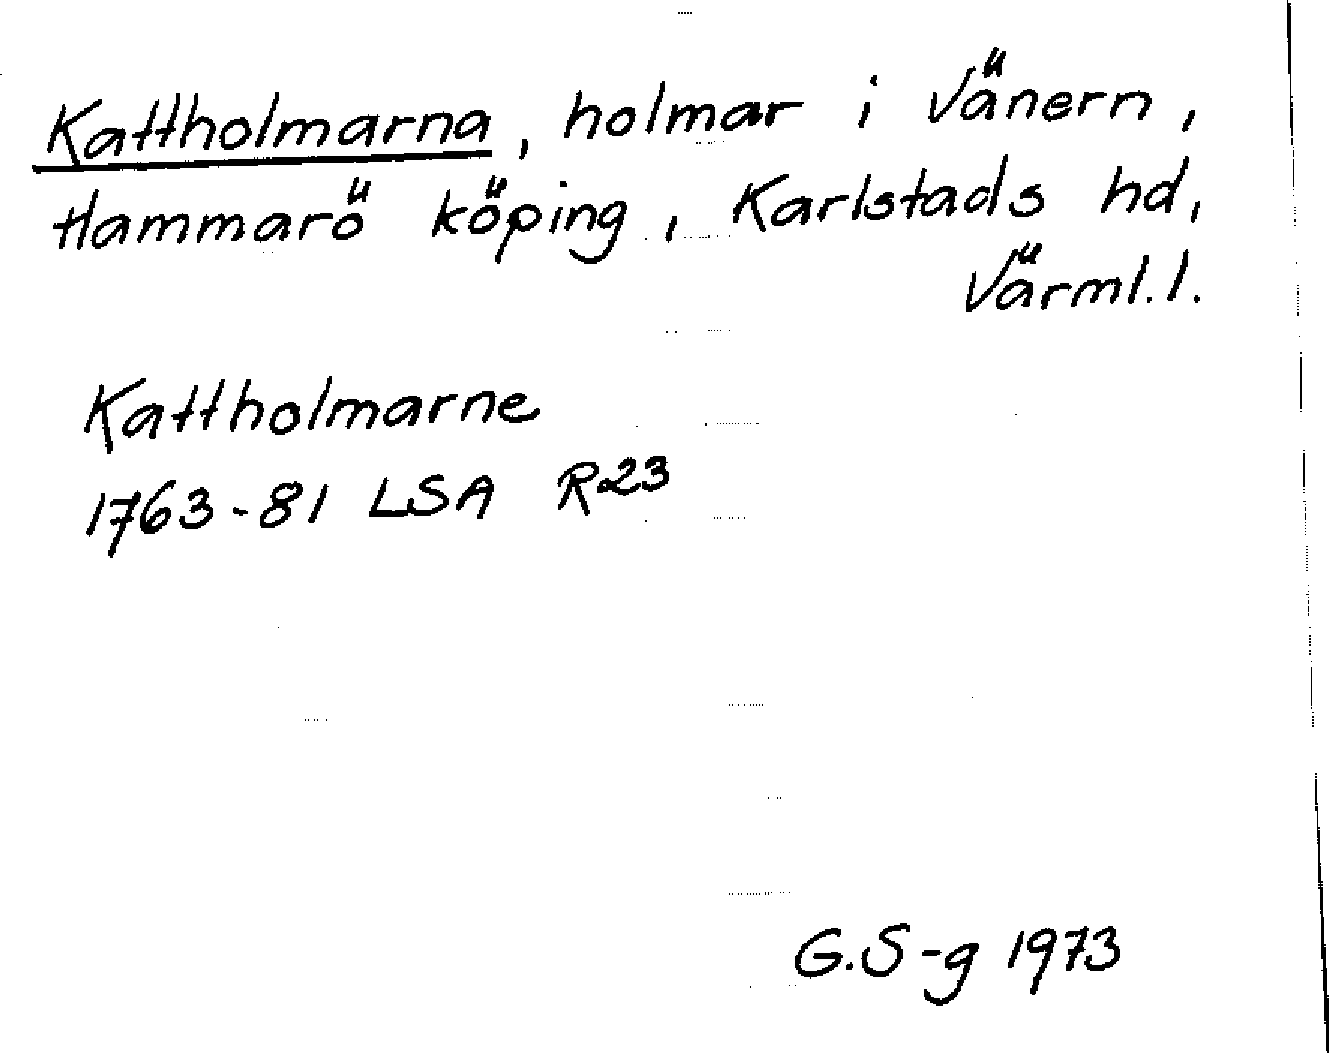 Kattholmarna, holmar i Vänern,
Hammarö köping, Karlstads hd,
Värml. l.
Kattholmarne
1763-81 LSA R23
G.S-g 1973